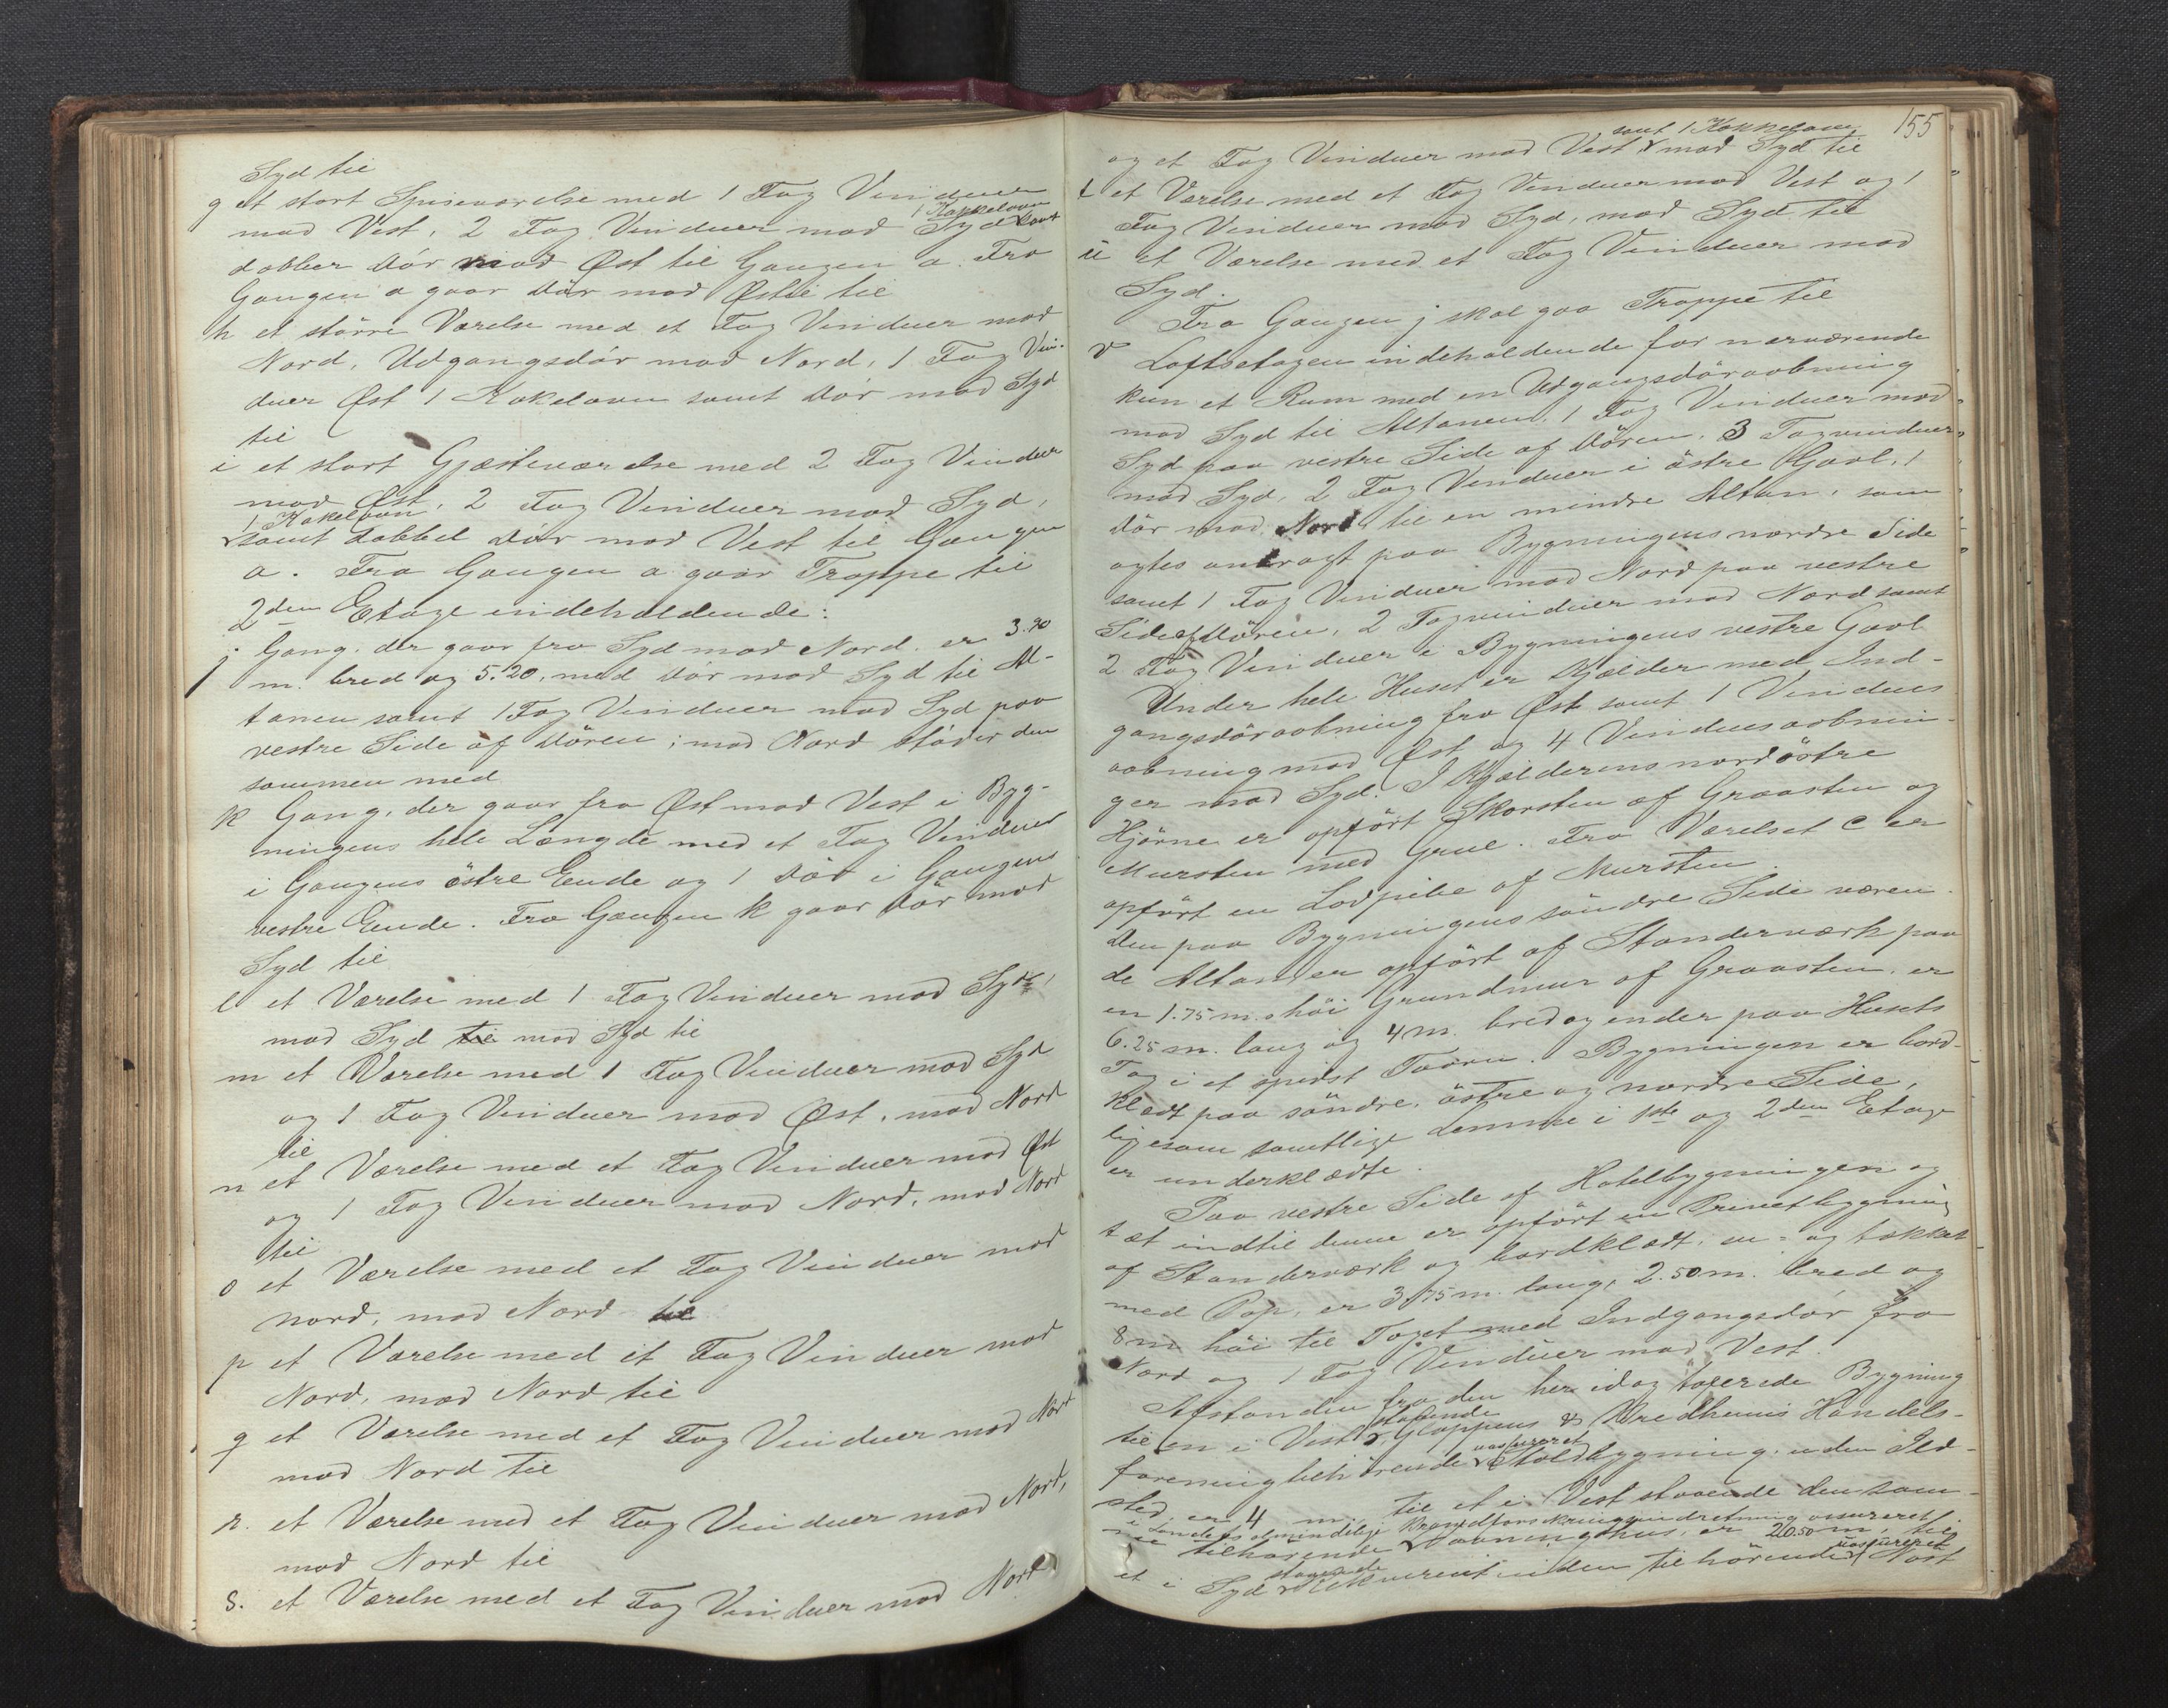 Syd til
g et stort Spiseværelse med 1 Fag Vinduer
mod Vest, 2 Fag Vinduer mod Syd 1 Kakkelovn samt
dobbel Dør mod Øst til Gangen a. Fra
Gangen a gaar Dør mod Øst til
h et større Værelse med et Fag Vinduer mod
Nord, Udgangsdør mod Nord, 1 Fag Vin-
duer Øst 1 Kakelovn samt Dør mod Syd
til
i et stort Gjæsteværelse med 2 Fag Vinduer
mod Øst, 2 Fag Vinduer mod Syd,
1 Kakelovn samt dobbel Dør mod Vest til Gangen
a. Fra Gangen a gaar Trappe til
2den Etage indeholdende:
j Gang, der gaar fra Syd mod Nord, er 3.90
m. bred og 5.20, med Dør mod Syd til Al-
tanen samt 1 Fag Vinduer mod Syd paa
vestre Side af Døren; mod Nord støder den
sammen med
k Gang, der gaar fra Øst mod Vest i Byg-
ningens hele Længde med et Fag Vinduer
i Gangens østre Ende og 1 Dør i Gangens
vestre Ende. Fra Gangen k gaar Dør mod
Syd til
l et Værelse med 1 Fag Vinduer mod Syd,
mod Syd til mod Syd til
m et Værelse med 1 Fag Vinduer mod Syd
og 1 Fag Vinduer mod Øst, mod Nord
til
n et Værelse med et Fag Vinduer mod Øst
og 1 Fag Vinduer mod Nord, mod Nord
til
o et Værelse med et Fag Vinduer mod
nord, mod Nord til
p et Værelse med et Fag Vinduer mod
Nord, mod Nord til
q et Værelse med et Fag Vinduer mod Nord
mod Nord til
r. et Værelse med et Fag Vinduer mod Nord,
mod Nord til
s. et Værelse med et Fag Vinduer mod Nord
155
og et Fag Vinduer mod Vest samt 1 Kakkelovn mod Syd til
t et Værelse med et Fag Vinduer mod Vest og 1
Fag Vinduer mod Syd, mod Syd til
u et Værelse med et Fag Vinduer mod
Syd.
Fra Gangen j skal gaa Trappe til
v Loftsetagen indeholdende for nærværende
kun et Rum med en Udgangsdøraabning
mod Syd til Altanen, 1 Fag Vinduer mod
Syd paa vestre Side af Døren, 3 Tagvinduer
mod Syd, 2 Fag Vinduer i østre Gavl, 1
Dør mod Nord til en mindre Altan, som
agtes anbragt paa Bygningens nordre Side
samt 1 Fag Vinduer mod Nord paa vestre
Side af Døren, 2 Tagvinduer mod Nord samt
2 Fag Vinduer i Bygningens vestre Gavl
Under hele Huset er Kjælder med Ind-
gangsdøraabning fra Øst samt 1 Vindues
aabning mod Øst og 4 Vinduesaabnin-
ger mod Syd. I Kjælderens nordøstre
Hjørne er opført Skorsten af Graasten og
Mursten med Grue. Fra Værelset c er
opført en Lodpibe af Mursten.
Den paa Bygningens søndre Side væren-
de Altan er opført af Standerværk paa
en 1.75 m. høi Grundmur af Graasten, er
6.25 m. lang og 4 m. bred og ender paa Husets
Tag i et spidst Taarn. Bygningen er bord-
klædt paa søndre, østre og nordre Side,
ligesom samtlige Lemme i 1ste og 2den Etage
er underklædte.
Paa vestre Side af Hotelbygningen og
tæt indtil denne er opført en Privetbygning
af Standerværk og bordklædt, ur- og tækket
med Pap, er 3.75 m. lang, 2.50 m. bred og
8 m høi til Taget med Indgangsdør fra
Nord og 1 Fag Vinduer mod Vest.
Afstanden fra den her idag taxerede Bygning
til en i Vest staaende Gloppens & Bredheims Handels-
forening tilhørende uassureret Stoldbygning, uden Ild-
sted, er 4 m., til et i Vest staaende den sam-
me tilhørende i Landets almindelige Brandforsikringsindretning assureret Vaaningshus, er 26.50 m, til
et i Syd staaende tilhørende uassureret Nøst